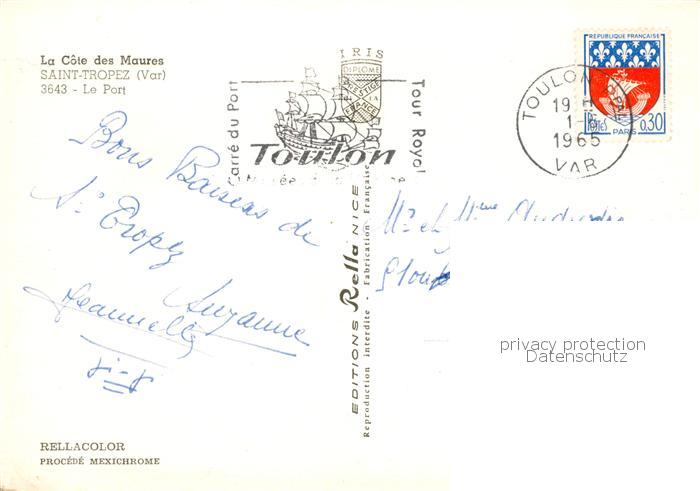 La Côte des Maures
SAINT-TROPEZ (Var)
3643 - Le Port
IRIS
DIPLOME
PRESTIGE
FRANCE
Carré du Port
Tour Royal
Toulon
REPUBLIQUE FRANÇAISE
POSTES
PARIS
0,30
TOULON
19
1-
1965
VAR
Bons Baisers de
St Tropez
Suzanne
Jeannette
Mr et Mme
EDITIONS Rella NICE
Reproduction interdite - Fabrication Française
privacy protection
Datenschutz
RELLACOLOR
PROCÉDÉ MEXICHROME